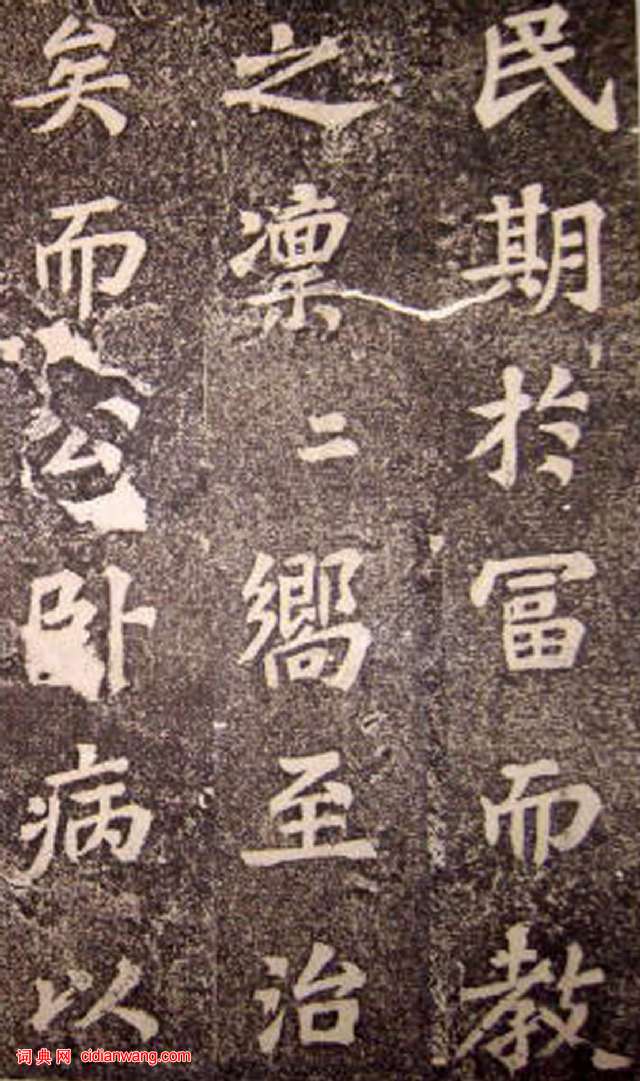 民期於冨而教
之凛二嚮至治
矣而公卧病以
词典网 cidianwang.com